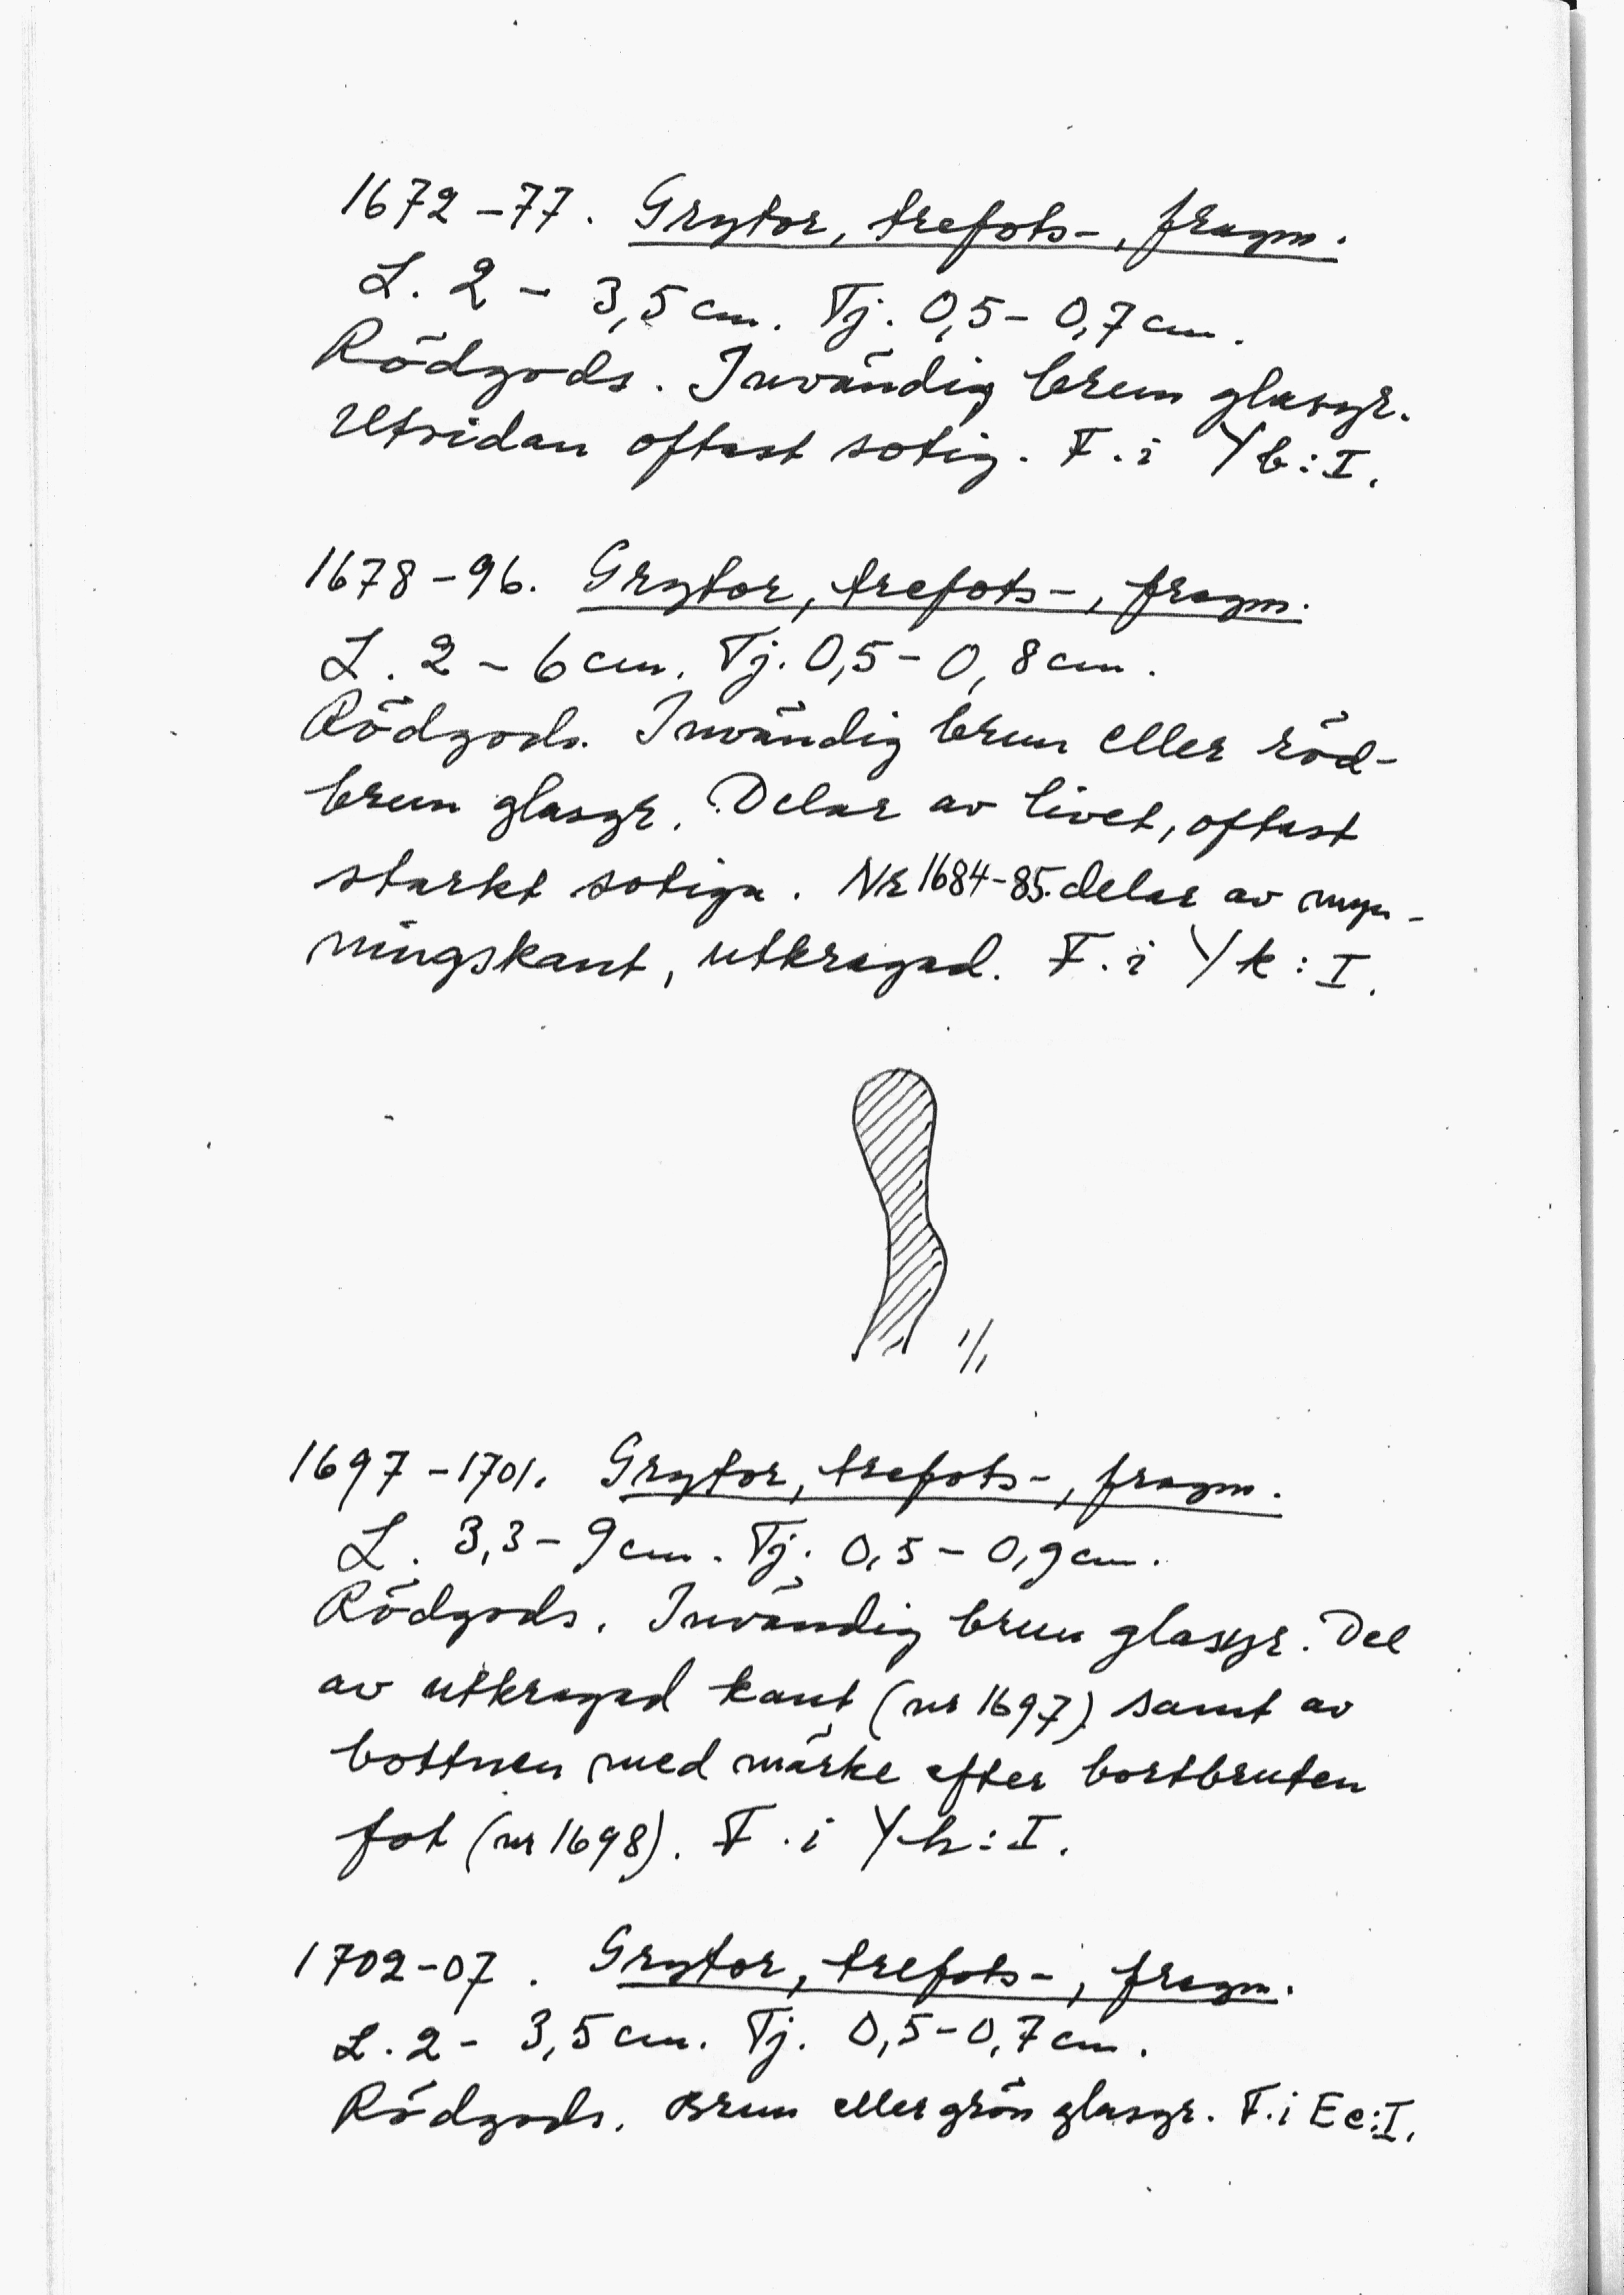 1672-77. Grytor, trefots-, fragm.
L. 2 - 3,5 cm. Tj. 0,5 - 0,7 cm.
Rödgods. Invändig brun glasyr.
Utsidan oftast sotig. F. i Yb:I.
1678-96. Grytor, trefots-, fragm.
L. 2 - 6 cm. Tj. 0,5 - 0,8 cm.
Rödgods. Invändig brun eller röd-
brun glasyr. Delar av livet, oftast
starkt sotiga. Nr 1684-85. delar av myn-
ningskant, utkragad. F. i Yk:I.
1/1
1697-1701. Grytor, trefots-, fragm.
L. 3,3 - 9 cm. Tj. 0,5 - 0,9 cm.
Rödgods. Invändig brun glasyr. Del
av utkragad kant (nr 1697) samt av
bottnen med märke efter bortbruten
fot (nr 1698). F. i Yh:I.
1702-07. Grytor, trefots-, fragm.
L. 2 - 3,5 cm. Tj. 0,5-0,7 cm.
Rödgods. Brun eller grön glasyr. F. i Ee:I.